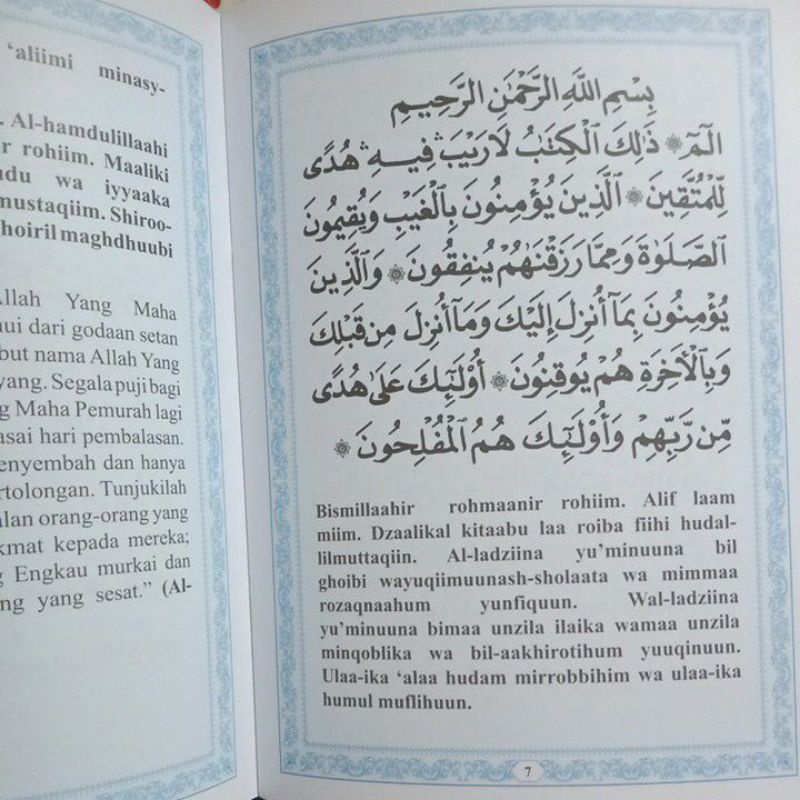 ‘aliimi minasy-
. Al-hamdulillaahi
ir rohiim. Maaliki
udu wa iyyaaka
mustaqiim. Shiroo-
hoiril maghdhuubi
Allah Yang Maha
nui dari godaan setan
but nama Allah Yang
yang. Segala puji bagi
g Maha Pemurah lagi
asai hari pembalasan.
enyembah dan hanya
rtolongan. Tunjukilah
alan orang-orang yang
kmat kepada mereka;
g Engkau murkai dan
ng yang sesat.” (Al-
بِسْمِ اللَّهِ الرَّحْمَٰنِ الرَّحِيمِ
الٓمٓ ۞ ذَٰلِكَ الْكِتَٰبُ لَا رَيْبَ ۛ فِيهِ ۛ هُدًى
لِّلْمُتَّقِينَ ۞ الَّذِينَ يُؤْمِنُونَ بِالْغَيْبِ وَيُقِيمُونَ
الصَّلَوٰةَ وَمِمَّا رَزَقْنَٰهُمْ يُنفِقُونَ ۞ وَالَّذِينَ
يُؤْمِنُونَ بِمَآ أُنزِلَ إِلَيْكَ وَمَآ أُنزِلَ مِن قَبْلِكَ
وَبِالْأَخِرَةِ هُمْ يُوقِنُونَ ۞ أُولَٰٓئِكَ عَلَىٰ هُدًى
مِّن رَّبِّهِمْ وَأُولَٰٓئِكَ هُمُ الْمُفْلِحُونَ ۞
Bismillaahir rohmaanir rohiim. Alif laam
miim. Dzaalikal kitaabu laa roiba fiihi hudal-
lilmuttaqiin. Al-ladziina yu’minuuna bil
ghoibi wayuqiimuunash-sholaata wa mimmaa
rozaqnaahum yunfiquun. Wal-ladziina
yu’minuuna bimaa unzila ilaika wamaa unzila
minqoblika wa bil-aakhirotihum yuuqinuun.
Ulaa-ika ‘alaa hudam mirrobbihim wa ulaa-ika
humul muflihuun.
7